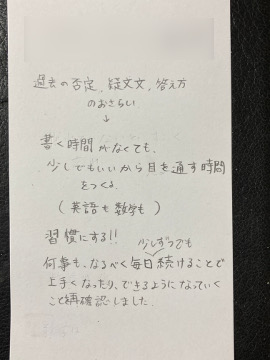 過去の否定、疑文文、答え方
のおさらい
↓
書く時間がなくても、
少しでもいいから目を通す時間
をつくる
(英語も数学も)
習慣にする!!
少しずつでも
何事も、なるべく毎日続けることで
上手くなったり、できるようになっていく
こと再確認しました。